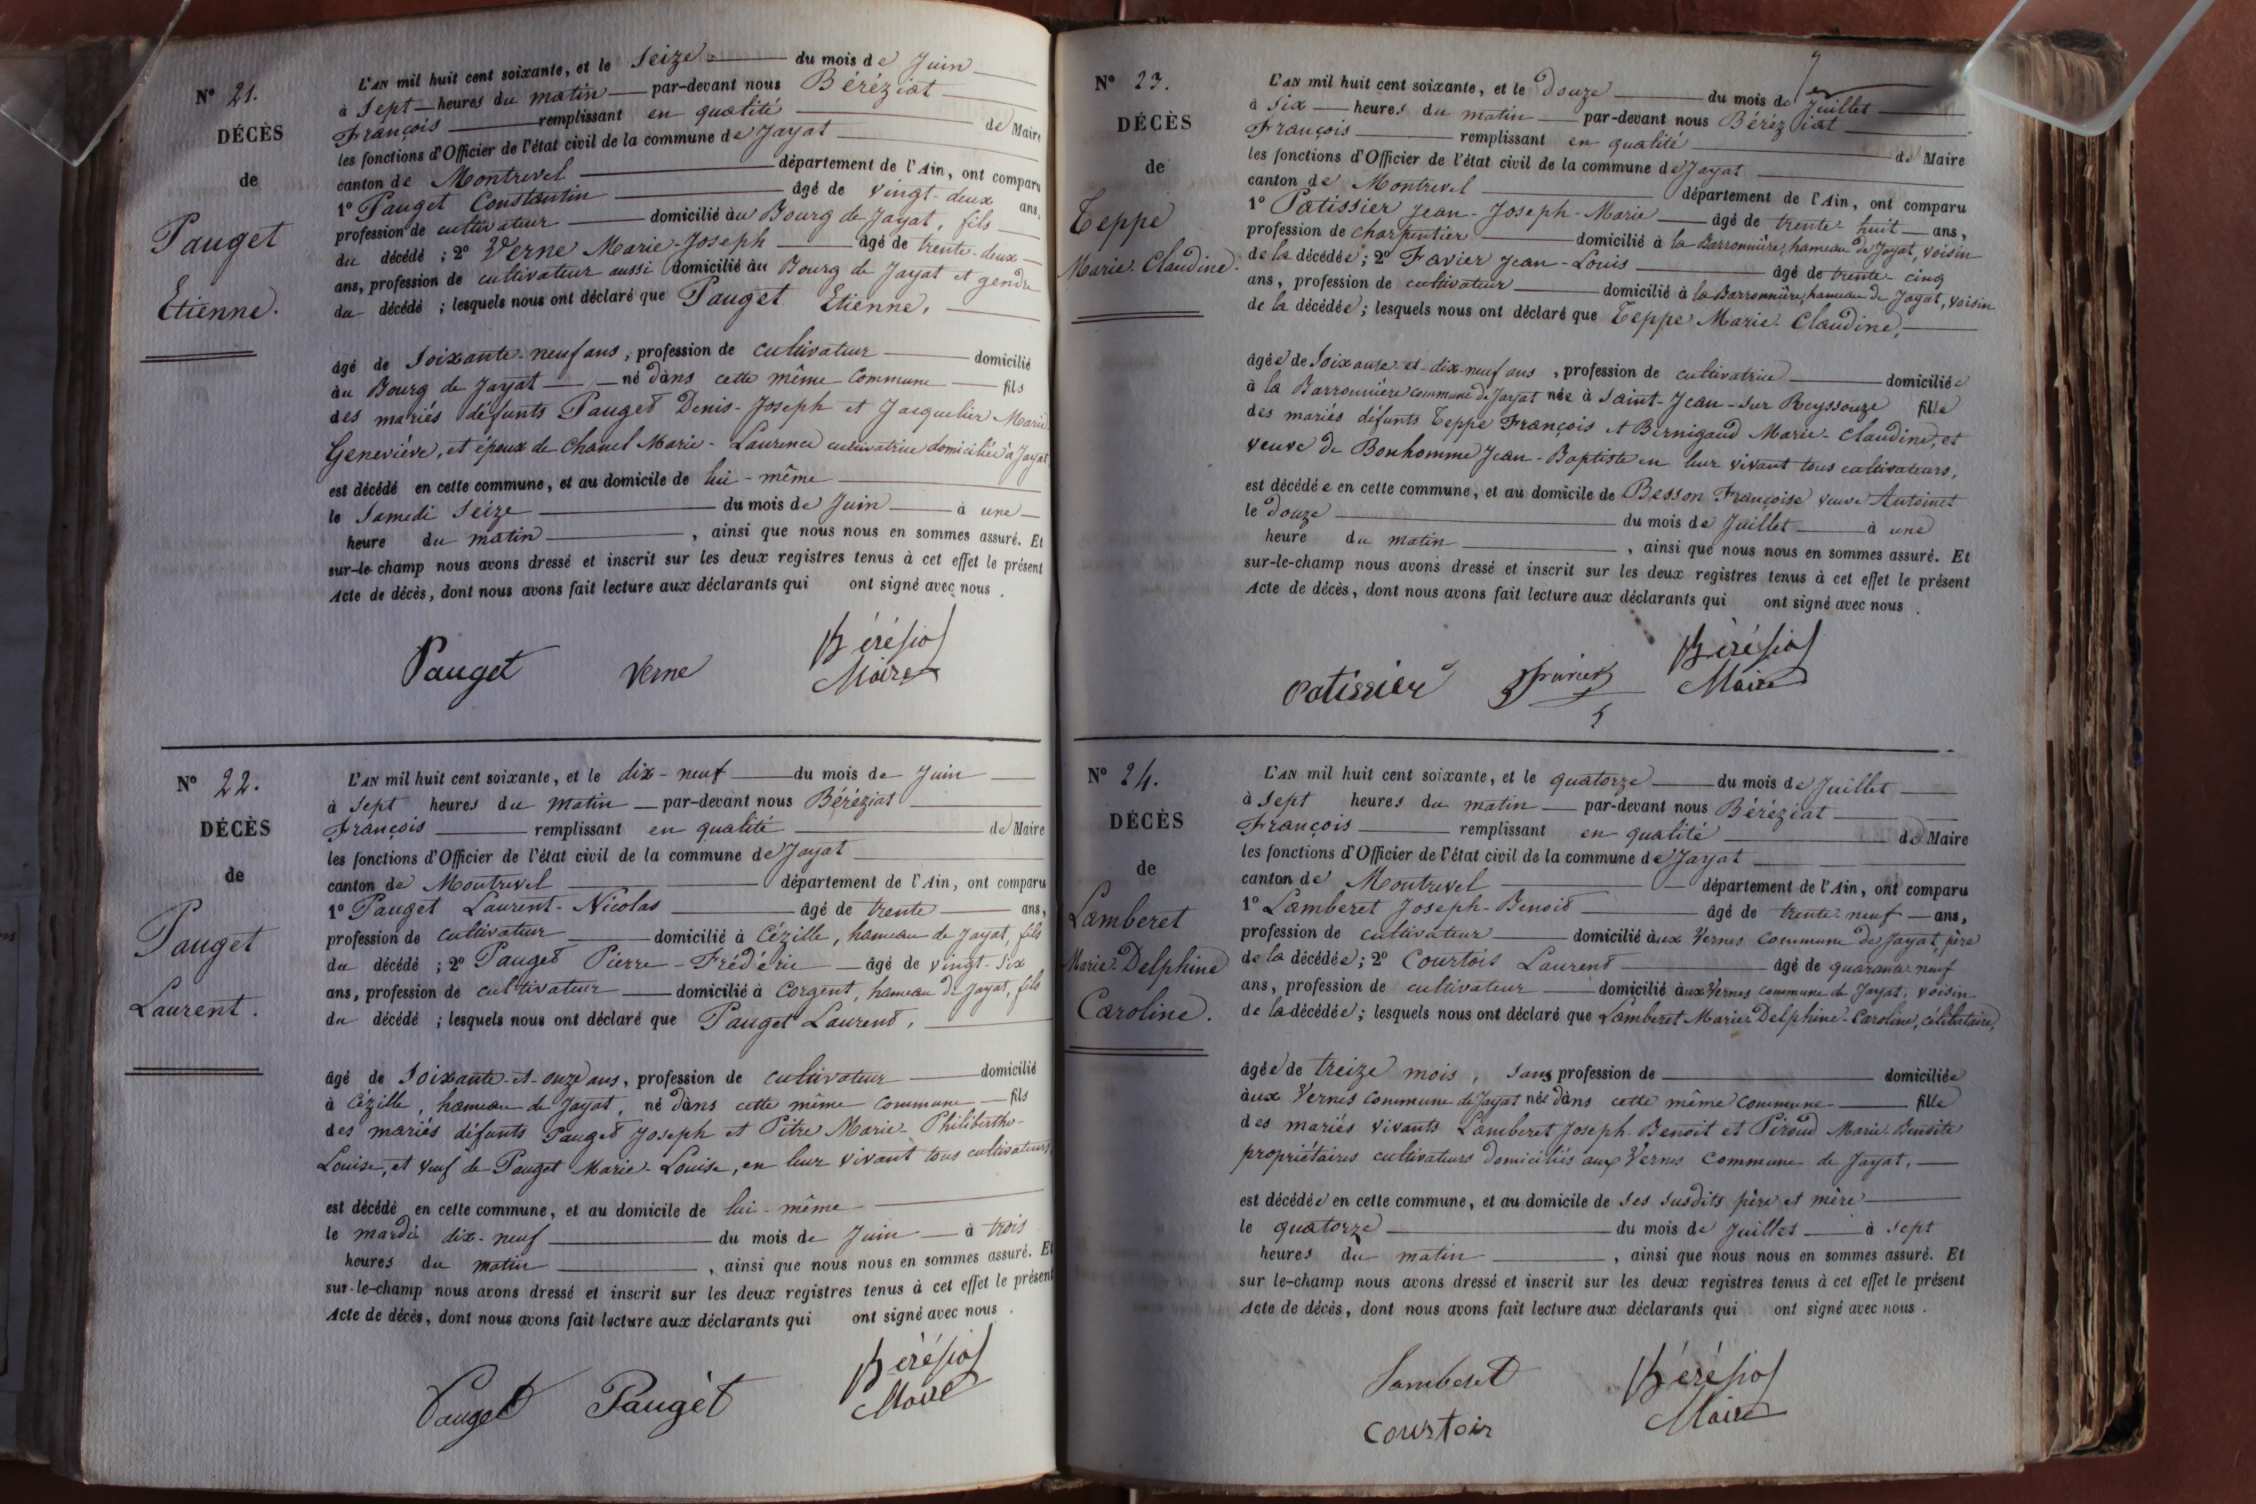 N° 21.
DÉCÈS
de
Pauget
Etienne.
L'AN mil huit cent soixante, et le Seize du mois de Juin
à Sept heures du matin par-devant nous Béréziat
François remplissant en qualité de Maire
les fonctions d'Officier de l'état civil de la commune de Jayat
canton de Montrevel département de l'Ain, ont comparu
1° Pauget Constantin âgé de vingt-deux ans,
profession de cultivateur domicilié au Bourg de Jayat, fils
du décédé ; 2° Verne Marie-Joseph âgé de trente-deux
ans, profession de cultivateur aussi domicilié au Bourg de Jayat et gendre
du décédé ; lesquels nous ont déclaré que Pauget Etienne,
âgé de Soixante-neuf ans, profession de cultivateur domicilié
au Bourg de Jayat né dans cette même commune fils
des mariés défunts Pauget Denis-Joseph et Jacquelier Marie
Geneviève, et époux de Chanel Marie-Laurence cultivatrice domiciliée à Jayat
est décédé en cette commune, et au domicile de lui-même
le Samedi Seize du mois de Juin à une
heure du matin , ainsi que nous nous en sommes assuré. Et
sur-le-champ nous avons dressé et inscrit sur les deux registres tenus à cet effet le présent
Acte de décès, dont nous avons fait lecture aux déclarants qui ont signé avec nous .
Pauget Verne Béréziat
Maire
N° 22.
DÉCÈS
de
Pauget
Laurent.
L'AN mil huit cent soixante, et le dix-neuf du mois de Juin
à Sept heures du matin par-devant nous Béréziat
François remplissant en qualité de Maire
les fonctions d'Officier de l'état civil de la commune de Jayat
canton de Montrevel département de l'Ain, ont comparu
1° Pauget Laurent-Nicolas âgé de trente ans,
profession de cultivateur domicilié à Cézille, hameau de Jayat, fils
du décédé ; 2° Pauget Pierre-Frédéric âgé de vingt-six
ans, profession de cultivateur domicilié à Corgent, hameau de Jayat, fils
du décédé ; lesquels nous ont déclaré que Pauget Laurent,
âgé de Soixante-et-onze ans, profession de cultivateur domicilié
à Cézille, hameau de Jayat, né dans cette même commune fils
des mariés défunts Pauget Joseph et Pitre Marie-Philiberthe-
Louise, et veuf de Pauget Marie-Louise, en leur vivant tous cultivateurs,
est décédé en cette commune, et au domicile de lui-même
le mardi dix-neuf du mois de Juin à trois
heures du matin , ainsi que nous nous en sommes assuré. Et
sur-le-champ nous avons dressé et inscrit sur les deux registres tenus à cet effet le présent
Acte de décès, dont nous avons fait lecture aux déclarants qui ont signé avec nous .
Pauget Pauget Béréziat
Maire
N° 23.
DÉCÈS
de
Teppe
Marie-Claudine.
L'AN mil huit cent soixante, et le douze du mois de Juillet
à Six heures du matin par-devant nous Béréziat
François remplissant en qualité de Maire
les fonctions d'Officier de l'état civil de la commune de Jayat
canton de Montrevel département de l'Ain, ont comparu
1° Patissier Jean-Joseph-Marie âgé de trente-huit ans,
profession de charpentier domicilié à la Barronnière, hameau de Jayat, voisin
de la décédée ; 2° Favier Jean-Louis âgé de trente-cinq
ans, profession de cultivateur domicilié à la Barronnière, hameau de Jayat, voisin
de la décédée ; lesquels nous ont déclaré que Teppe Marie-Claudine,
âgée de Soixante-et-dix-neuf ans, profession de cultivatrice domiciliée
à la Barronnière commune de Jayat née à Saint-Jean-sur Reyssouze fille
des mariés défunts Teppe François et Bernigaud Marie-Claudine, et
veuve de Bonhomme Jean-Baptiste en leur vivant tous cultivateurs,
est décédée en cette commune, et au domicile de Besson Françoise veuve Antoinet
le douze du mois de Juillet à une
heure du matin , ainsi que nous nous en sommes assuré. Et
sur-le-champ nous avons dressé et inscrit sur les deux registres tenus à cet effet le présent
Acte de décès, dont nous avons fait lecture aux déclarants qui ont signé avec nous .
Patissier Favier Béréziat
Maire
N° 24.
DÉCÈS
de
Lamberet
Marie-Delphine
Caroline.
L'AN mil huit cent soixante, et le quatorze du mois de Juillet
à Sept heures du matin par-devant nous Béréziat
François remplissant en qualité de Maire
les fonctions d'Officier de l'état civil de la commune de Jayat
canton de Montrevel département de l'Ain, ont comparu
1° Lamberet Joseph-Benoit âgé de trente-neuf ans,
profession de cultivateur domicilié aux Vernes commune de Jayat, père
de la décédée ; 2° Courtois Laurent âgé de quarante-neuf
ans, profession de cultivateur domicilié aux Vernes commune de Jayat, voisin
de la décédée ; lesquels nous ont déclaré que Lamberet Marie-Delphine-Caroline, célibataire,
âgée de treize mois, sans profession de domiciliée
aux Vernes commune de Jayat née dans cette même commune fille
des mariés vivants Lamberet Joseph-Benoit et Piroud Marie-Benoite
propriétaires cultivateurs domiciliés aux Vernes commune de Jayat,
est décédée en cette commune, et au domicile de ses susdits père et mère
le quatorze du mois de Juillet à sept
heures du matin , ainsi que nous nous en sommes assuré. Et
sur le-champ nous avons dressé et inscrit sur les deux registres tenus à cet effet le présent
Acte de décès, dont nous avons fait lecture aux déclarants qui ont signé avec nous .
Lamberet Béréziat
Courtois Maire